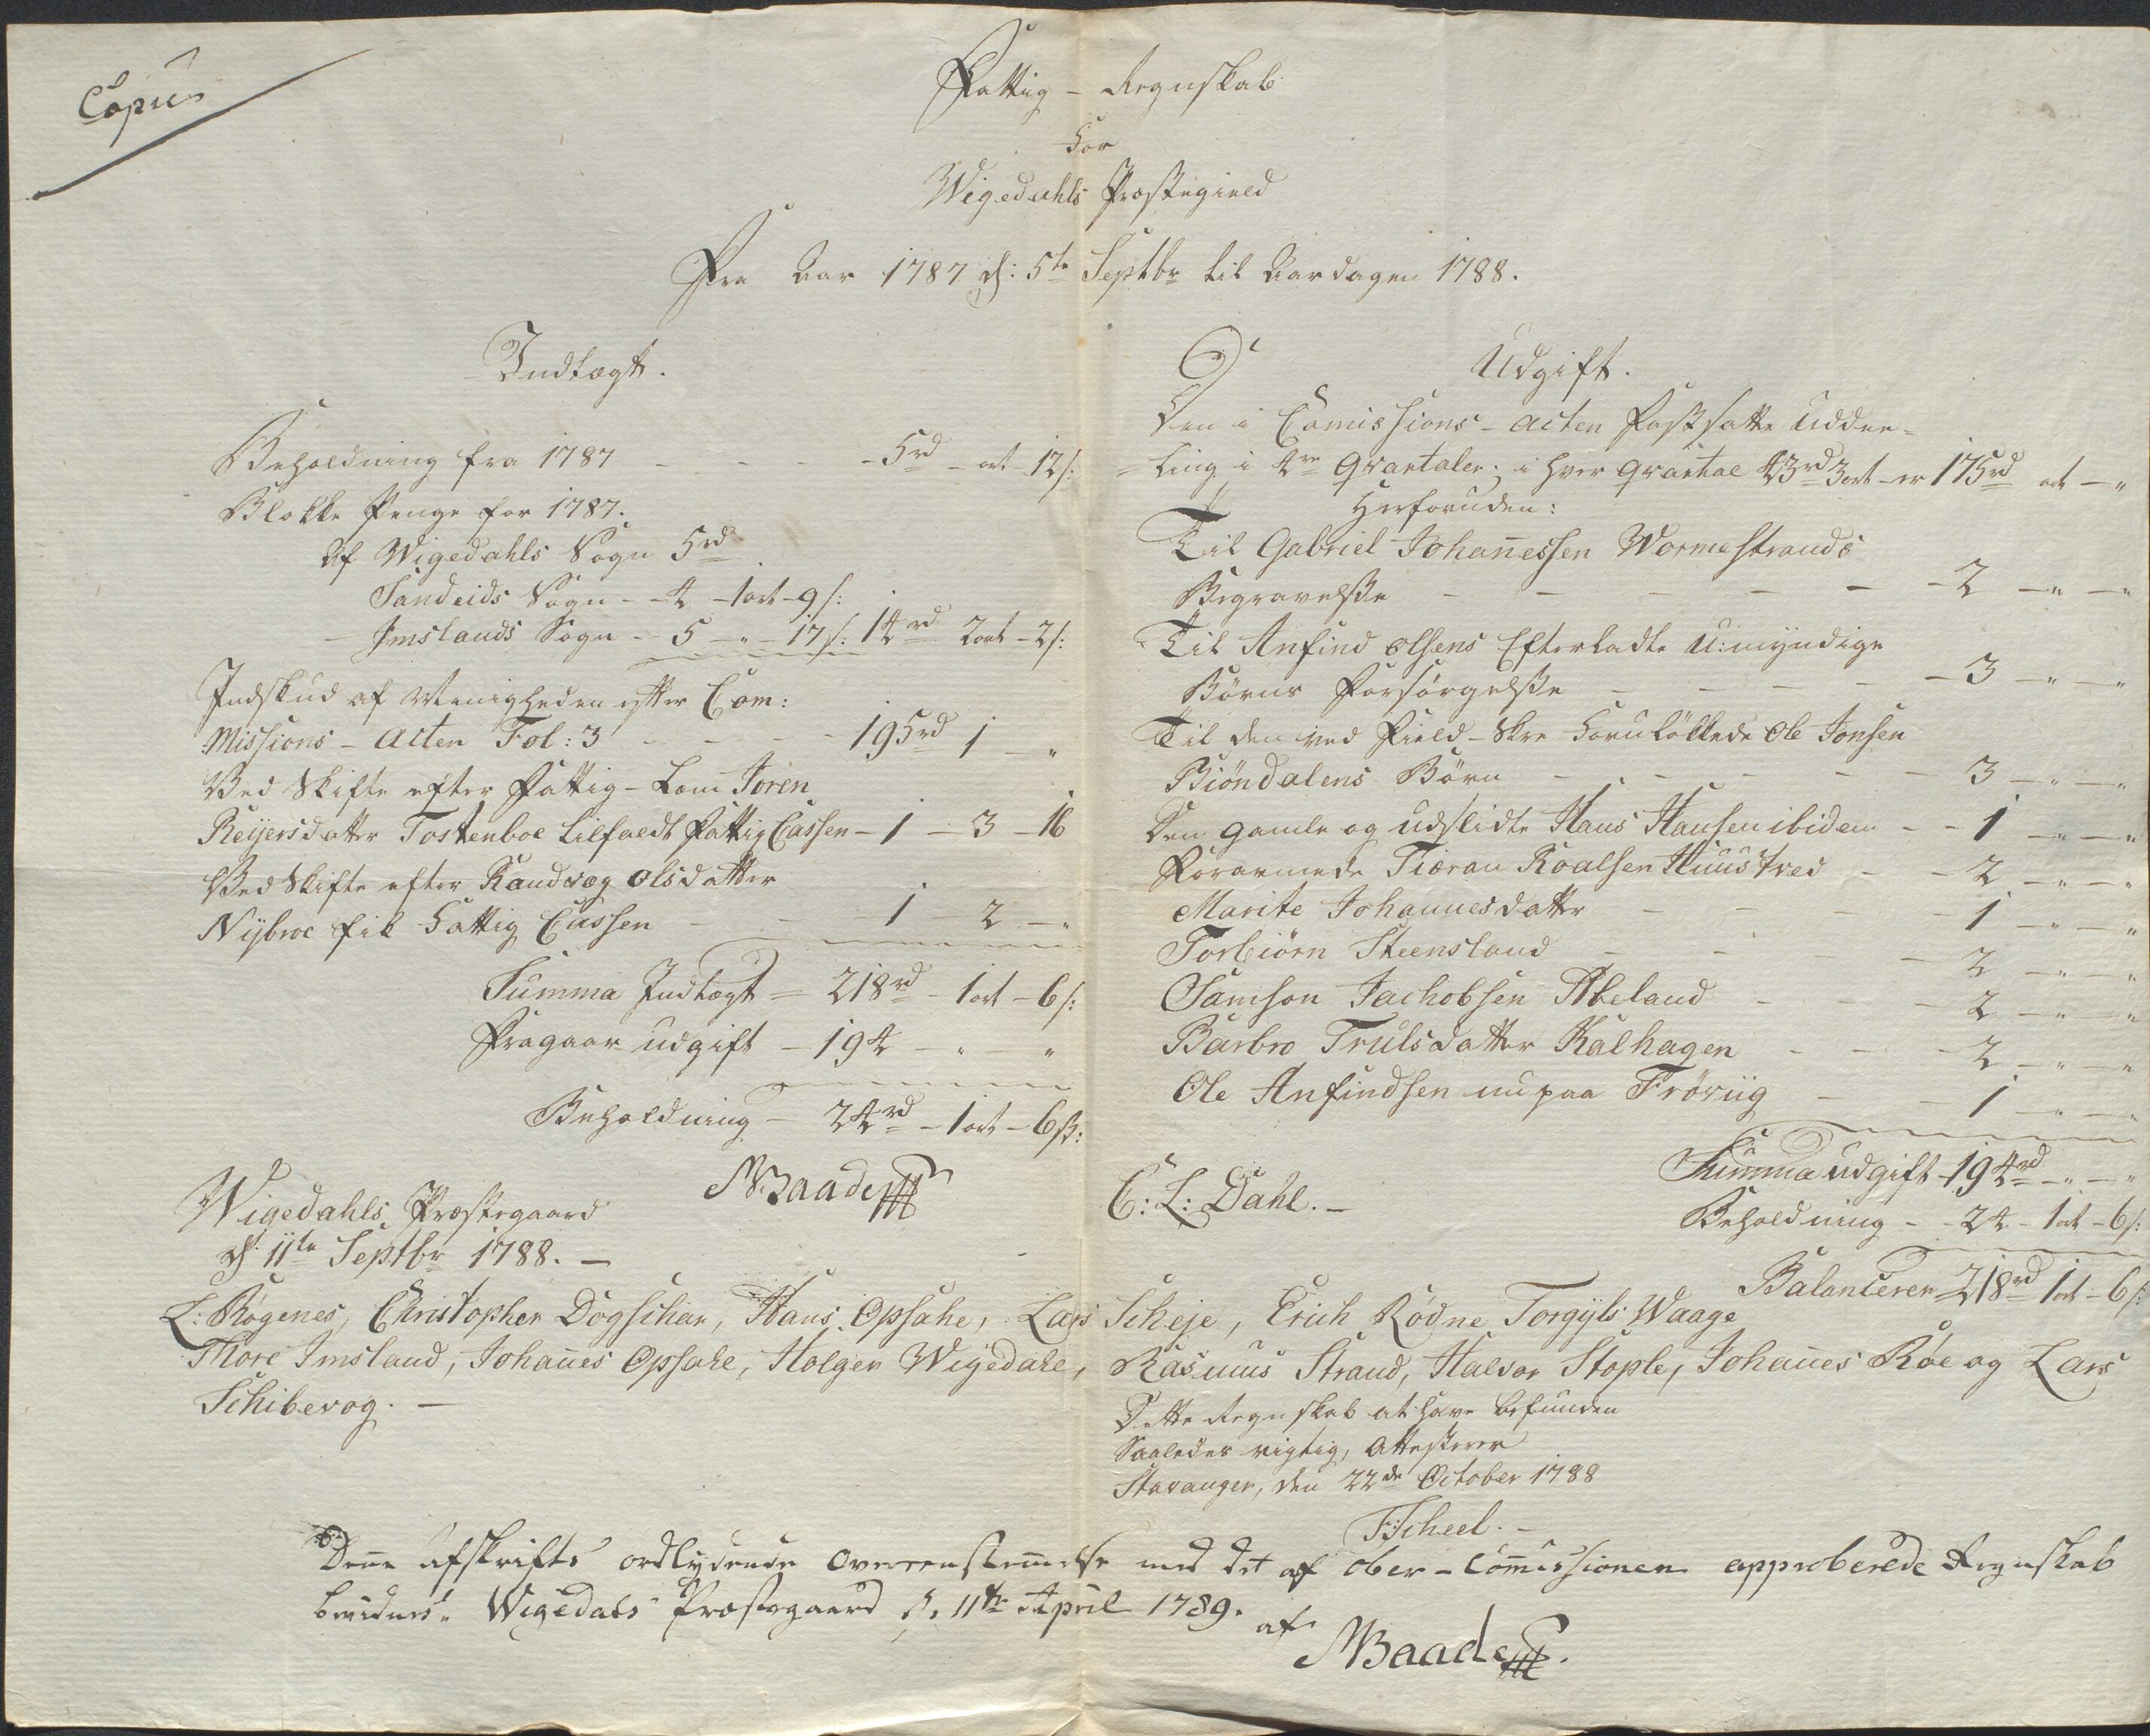 Copie
Fattig - Regnskab
for
Wigedahls Præstegield
Fra Aar 1787 d: 5te Septbr til Aardagen 1788.
Indtægt.
Beholdning fra 1787 - - - - 5rd - ort - 12 s:
Blokke Penge for 1787.
Af Wigedahls Sogn 5rd
Sandeids Sogn - - 4 - 1 ort - 9 s:
- Imslands Sogn - - 5 - " - 17 s: 14rd 2 ort - 2 s:
Indskud af Menigheden efter Com:
Missions - Acten Fol: 3 - - - - 195rd 1 - "
Ved Skifte efter Fattig - Lem Joren
Reijersdatter Tostenboe tilfaldt Fattig Cassen - 1 - 3 - 16
Ved Skifte efter Randveg Olsdatter
Nijbroe fik Fattig Cassen - - 1 - 2 - "
Summa Indtægt = 218rd - 1 ort - 6 s:
Fragaar udgift - 194 - " - "
Beholdning - 24rd - 1 ort - 6 s:
Wigedahls Præstegaard
d: 11te Septbr 1788. -
MBaade
Udgift.
Den i Comissions - Acten Fastsatte Uddee-
= ling i 4re Qvartaler; i hver Qvartal 43rd 3 ort - er 175rd ort - "
Herforuden:
Til Gabriel Johañessen Wormestrands
Begravelse - - - - - 2 - " - "
Til Anfind Olsens Efterladte U:myndige
Børns Forsørgelse - - - - - 3 - " - "
Til den ved Field - Skre forulükkede Ole Jonsen
Biöndalens Börn - - - - - 3 - " - "
Den gamle og udslidte Hans Hansen ibidem - - 1 - " - "
Forarmede Tiæran Roalsen Huustved - - 2 - " - "
Marite Johannesdatter - - - - 1 - " - "
Torbiörn Steensland - - - - 2 - " - "
Samson Jachobsen Abeland - - - 2 - " - "
Barbro Trulsdatter Kalhagen - - - 2 - " - "
Ole Anfindsen nu paa Frøviig - - 1 - " - "
Summa Udgift - 194rd - " - "
C: L: Dahl. -
Beholdning - - 24 - 1 ort - 6 s:
Balancerer 218rd 1 ort - 6 s:
L: Røgenes, Christopher Dogschar, Hans Opsahe, Lars Scheje, Erich Rødne Torgijls Waage
Thore Imsland, Johañes Opsahl, Holger Wigedahl, Rasmus Strand, Halvor Stople, Johañes Röe og Lars
Schibevog. -
Dette Regnskab at have befunden
Saaledes rigtig, Attesterer
Stavanger, den 22de October 1788
FScheel. -
Deñe Afskrifts ordlydende Overeenstemmelse med det af Ober - Comissionen approberede Regnskab
bevidner. Wigedals Præstegaard d. 11te April 1789.
af
MBaade.